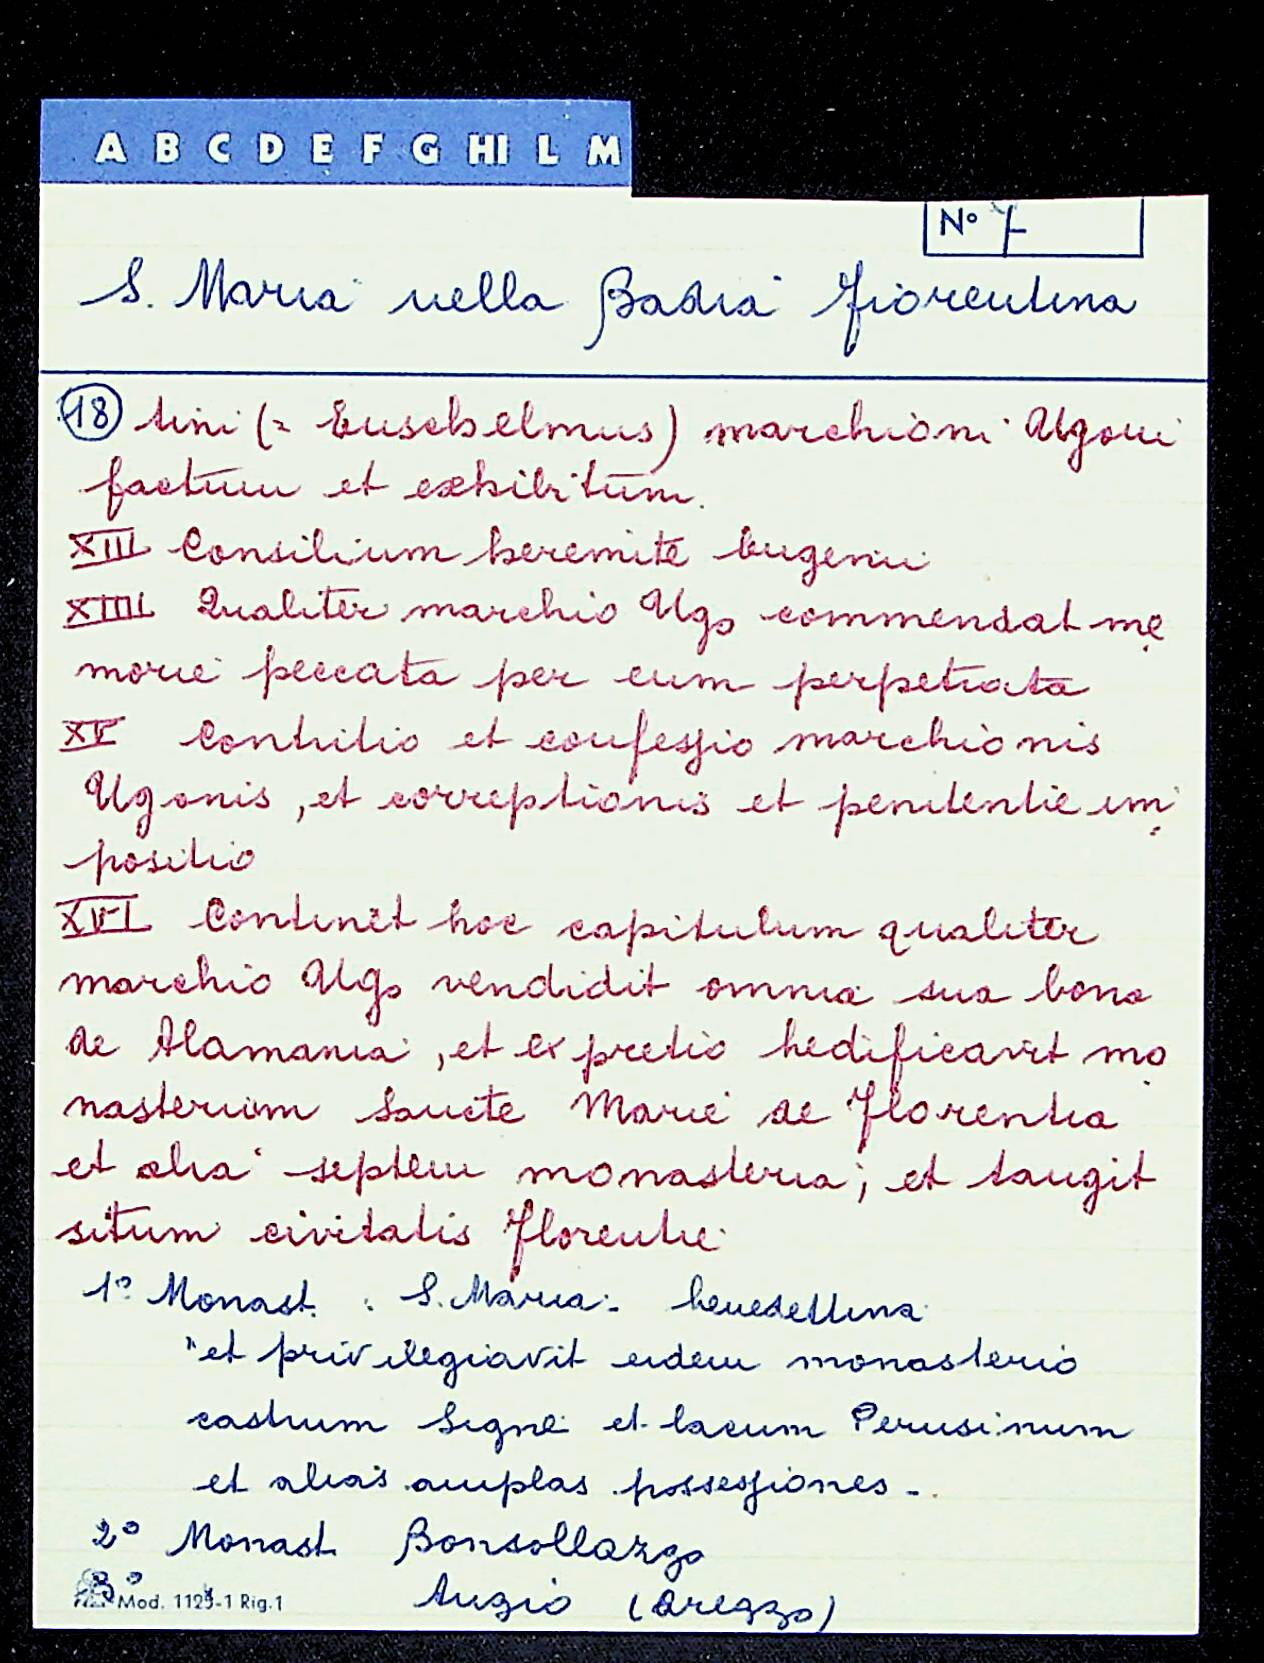 A B C D E F G HI L M
Nº 7
S. Maria nella Badia Fiorentina
18 tini (= Eusebelmus) marchioni Ugoni
factum et exhibitum.
XIII Consilium heremite Eugenii
XIIII Qualiter marchio Ugo commendat me
morie peccata per eum perpetrata
XV Contritio et confessio marchionis
Ugonis, et correptionis et penitentie im
positio
XVI Continet hoc capitulum qualiter
marchio Ugo vendidit omnia sua bona
de Alamania, et ex pretio hedificavit mo
nasterium Sancte Marie de Florentia
et alia septem monasteria; et tangit
situm civitatis Florentie
1º Monast. S. Maria - benedettina
"et privilegiavit eidem monasterio
castrum Signe et lacum Perusinum
et alias amplas possessiones -
2º Monast. Bonsollazgo
3º Anzio (Arezzo)
Mod. 1123-1 Rig.1